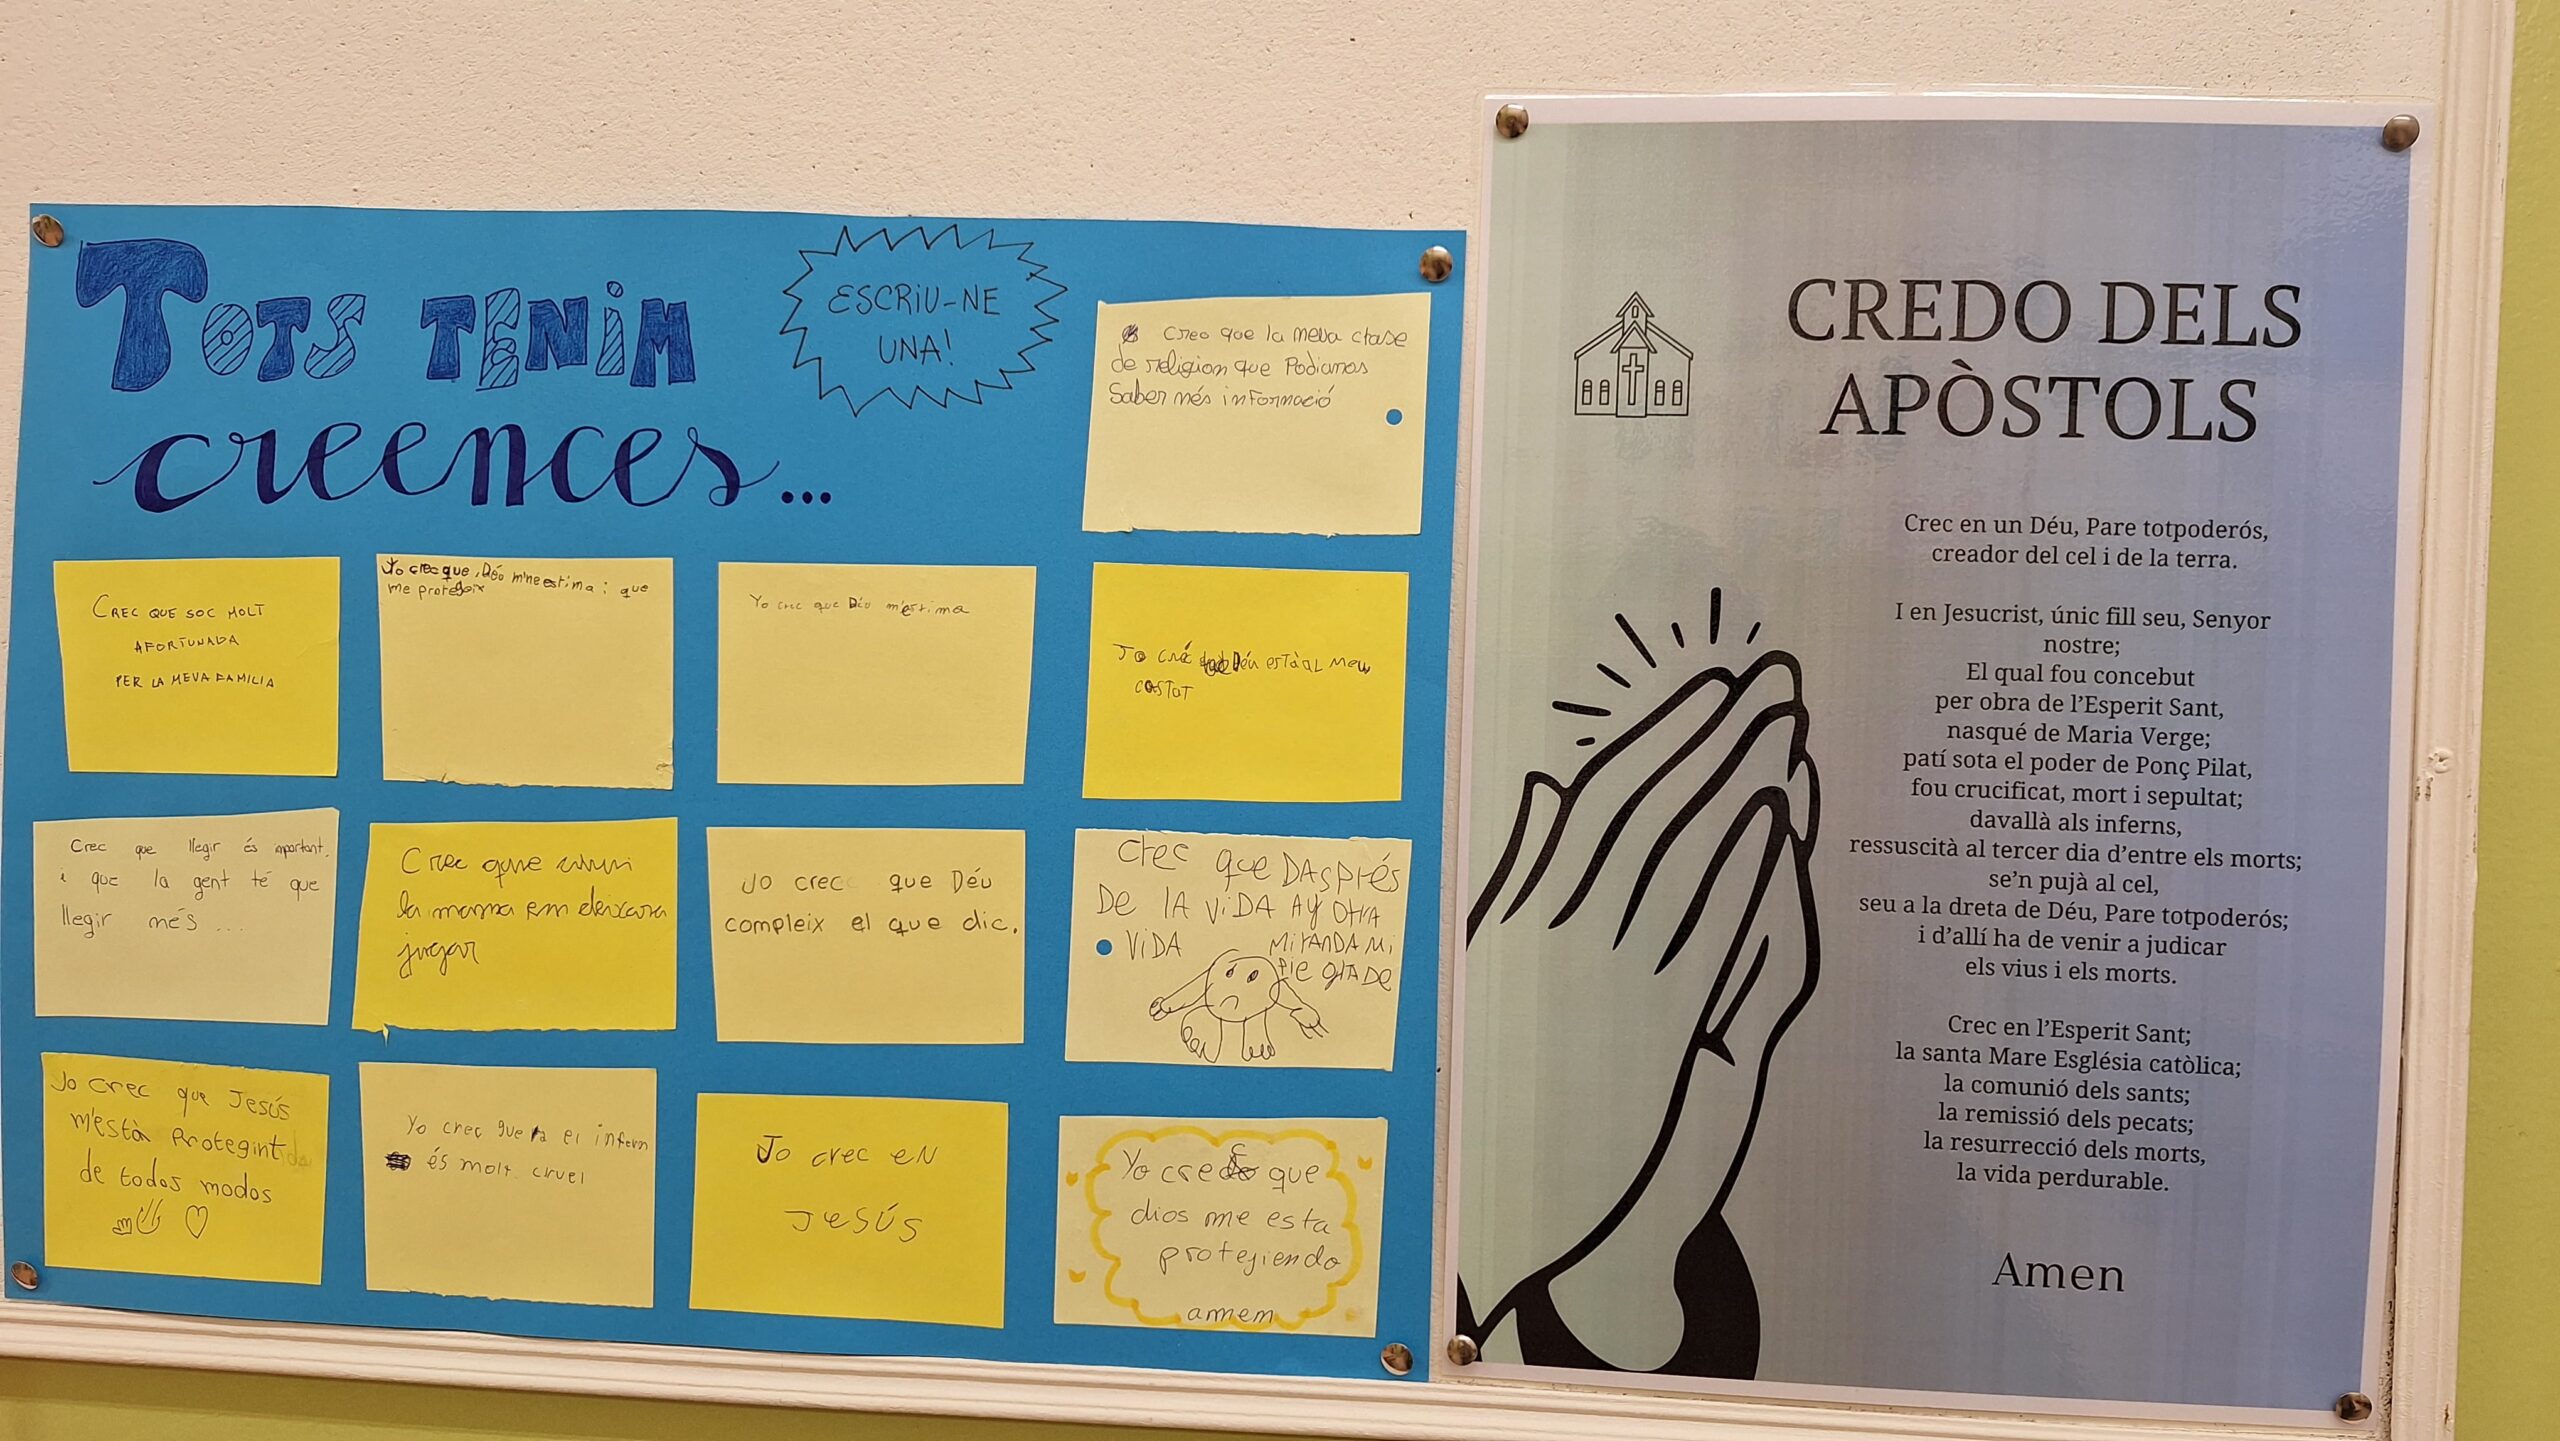 TOTS TENIM
creences...
ESCRIU-NE
UNA!
Creo que la meva clase
de religion que Podiamos
Saber més informació
CREC QUE SOC MOLT
AFORTUNADA
PER LA MEVA FAMILIA
Yo crec que Déo m'neestima i que
me protegeix
Yo crec que Déu m'estima
Jo cré que Déu està al meu
costat
Crec que llegir és important,
i que la gent té que
llegir més ...
Crec que avui
la mama em deixara
jugar
Jo crec que Déu
compleix el que dic.
Crec que DASPRÉS
DE LA VIDA AY OTRA
VIDA MIRANDA MI
PIE GRADE
Jo crec que Jesús
m'està protegint
de todos modos
Yo crec que el infern
és molt cruel
Jo crec en
Jesús
Yo crec que
dios me esta
protegiendo
amem
CREDO DELS
APÒSTOLS
Crec en un Déu, Pare totpoderós,
creador del cel i de la terra.
I en Jesucrist, únic fill seu, Senyor
nostre;
El qual fou concebut
per obra de l'Esperit Sant,
nasqué de Maria Verge;
patí sota el poder de Ponç Pilat,
fou crucificat, mort i sepultat;
davallà als inferns,
ressuscità al tercer dia d'entre els morts;
se'n pujà al cel,
seu a la dreta de Déu, Pare totpoderós;
i d'allí ha de venir a judicar
els vius i els morts.
Crec en l'Esperit Sant;
la santa Mare Església catòlica;
la comunió dels sants;
la remissió dels pecats;
la resurrecció dels morts,
la vida perdurable.
Amen